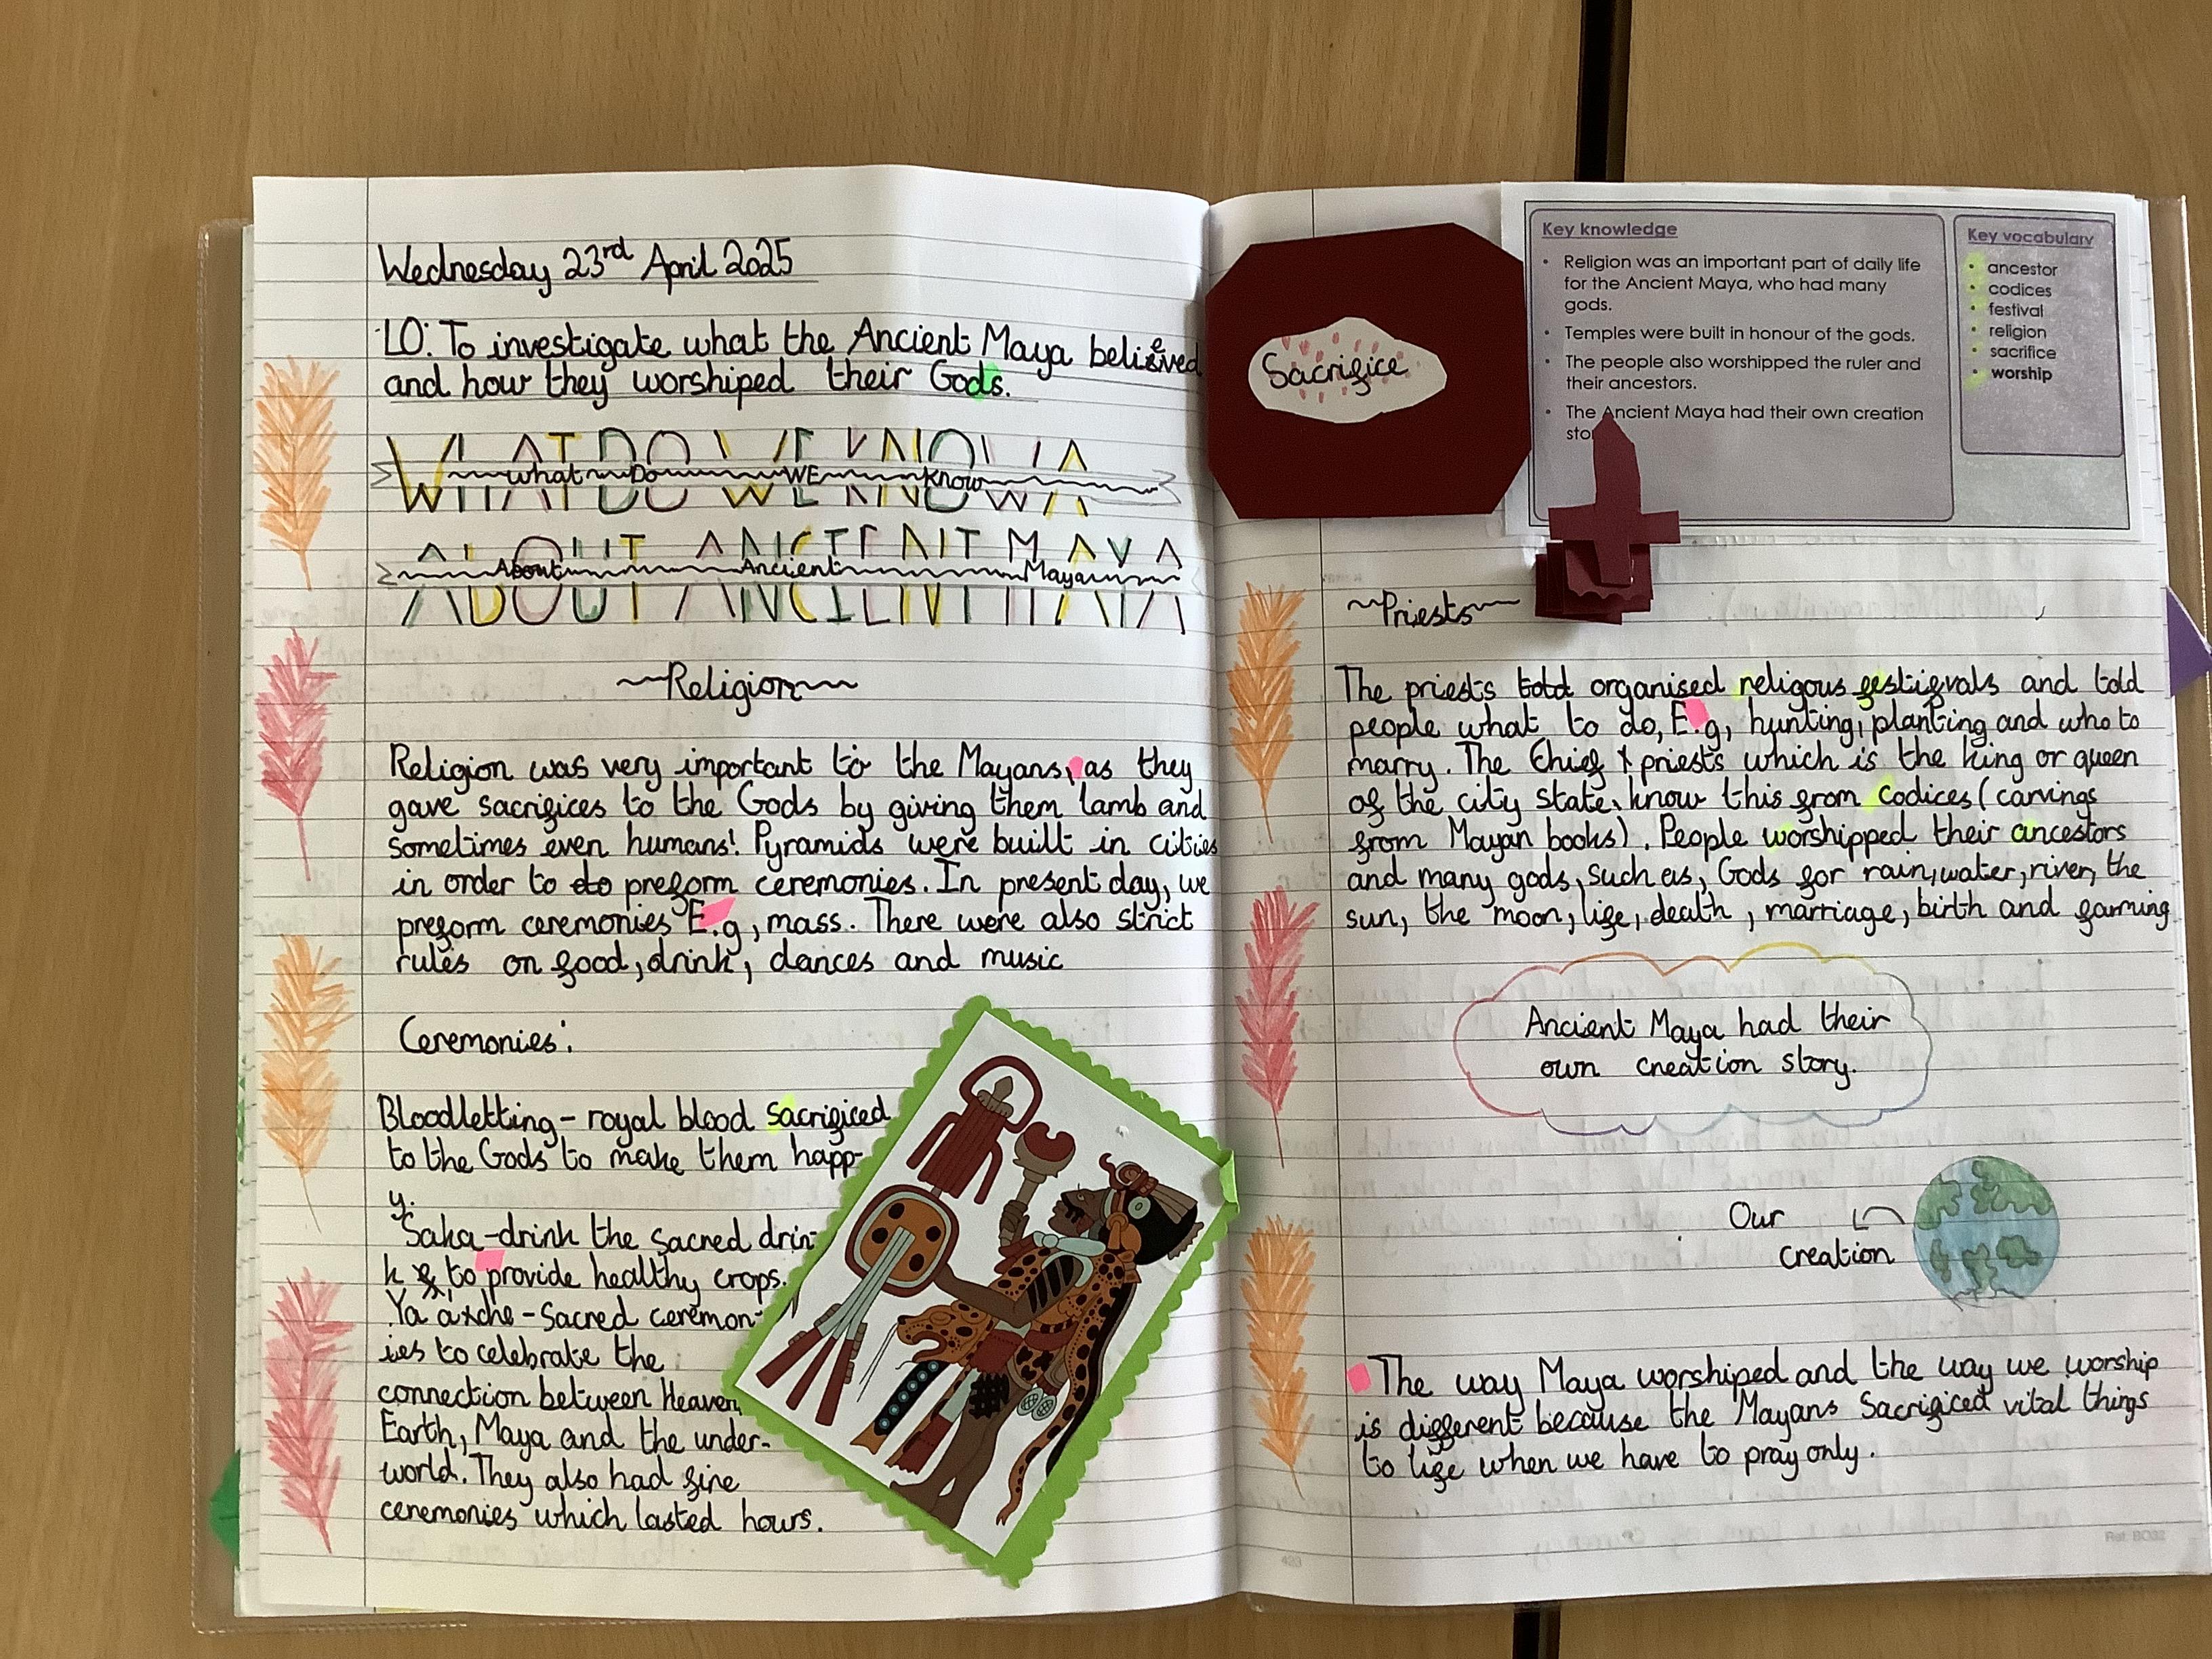 Wednesday 23rd April 2025
LO: To investigate what the Ancient Maya believed
and how they worshiped their Gods.
WHAT DO WE KNOW A
What Do WE Know
ABOUT ANCIENT MAYA
About Ancient Maya
~Religion~
Religion was very important to the Mayans, as they
gave sacrifices to the Gods by giving them lamb and
sometimes even humans! Pyramids were built in cities
in order to do preform ceremonies. In present day, we
preform ceremonies E.g, mass. There were also strict
rules on food, drink, dances and music
Ceremonies:
Bloodletting - royal blood sacrificed
to the Gods to make them happ-
y.
Saka-drink the sacred drin-
k to provide healthy crops.
Ya'axche - Sacred ceremon-
ies to celebrate the
connection between Heaven,
Earth, Maya and the under-
world. They also had fire
ceremonies which lasted hours.
Sacrifice
Key knowledge
• Religion was an important part of daily life
for the Ancient Maya, who had many
gods.
• Temples were built in honour of the gods.
• The people also worshipped the ruler and
their ancestors.
• The Ancient Maya had their own creation
Key vocabulary
• ancestor
• codices
• festival
• religion
• sacrifice
• worship
~Priests~
The priests told organised religous festivals and told
people what to do, E.g, hunting, planting and who to
marry. The Chief priests which is the king or queen
of the city state, know this from codices (carvings
from Mayan books). People worshipped their ancestors
and many gods, such as, Gods for rain, water, river, the
sun, the moon, life, death, marriage, birth and farming
Ancient Maya had their
own creation story.
Our
creation
The way Maya worshiped and the way we worship
is different because the Mayans Sacrificed vital things
to life when we have to pray only.
423
Ref: BO32